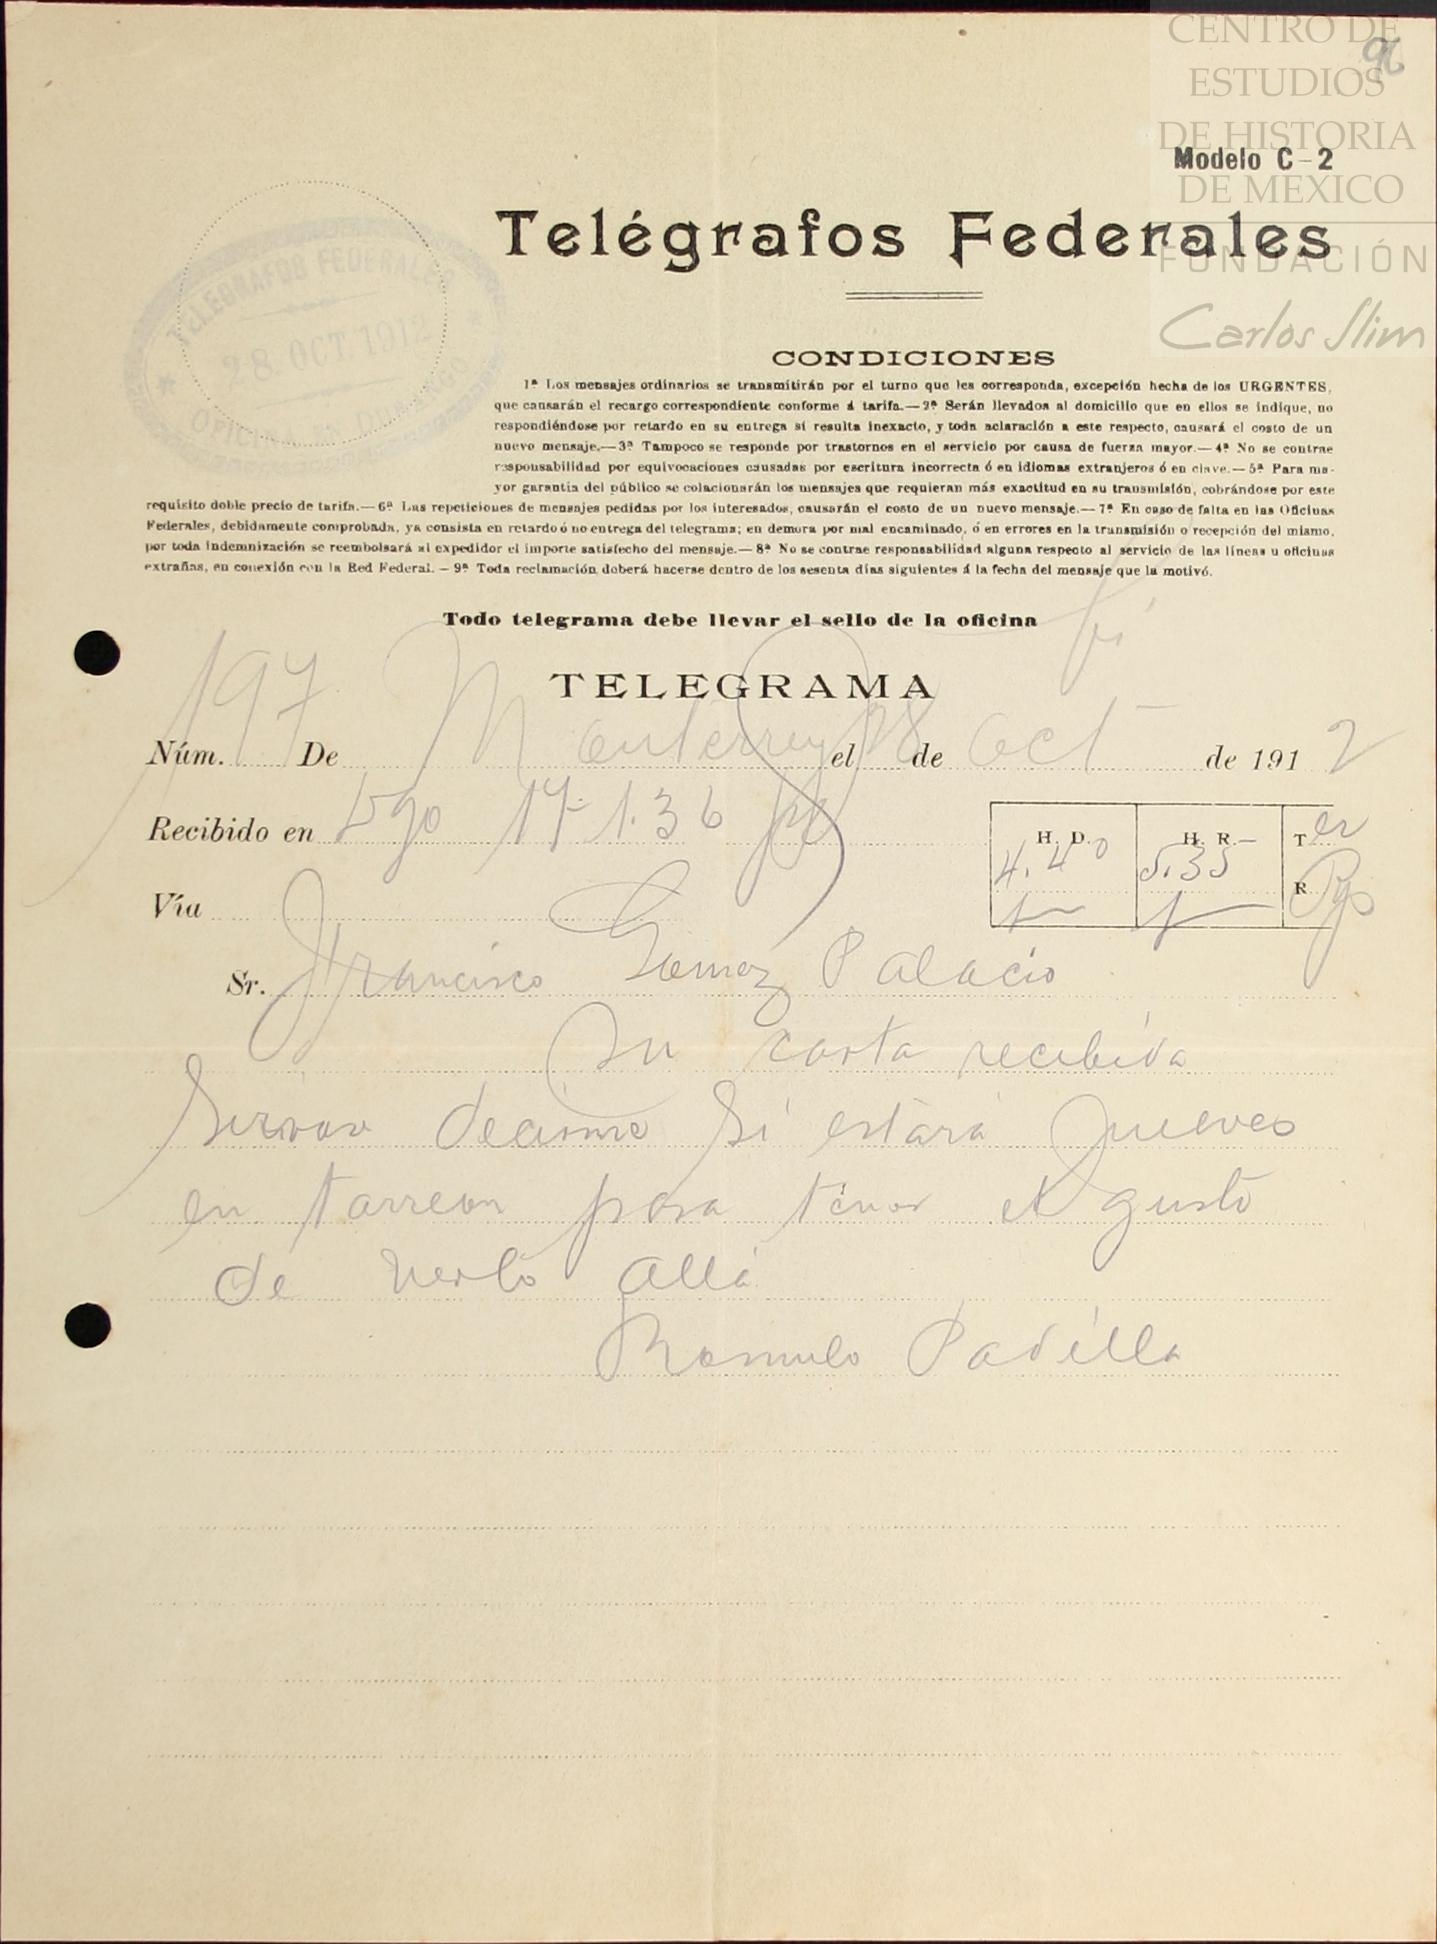 CENTRO DE
ESTUDIOS
DE HISTORIA
DE MEXICO
FUNDACIÓN
Carlos Slim
Modelo C-2
Telégrafos Federales
TELEGRAFOS FEDERALES
28 OCT. 1912
CONDICIONES
1ª Los mensajes ordinarios se transmitirán por el turno que les corresponda, excepción hecha de los URGENTES,
que causarán el recargo correspondiente conforme á tarifa.—2ª Serán llevados al domicilio que en ellos se indique, no
respondiéndose por retardo en su entrega si resulta inexacto, y toda aclaración a este respecto, causará el costo de un
nuevo mensaje.—3ª Tampoco se responde por trastornos en el servicio por causa de fuerza mayor.—4ª No se contrae
responsabilidad por equivocaciones causadas por escritura incorrecta ó en idiomas extranjeros ó en clave.—5ª Para ma-
yor garantía del público se colacionarán los mensajes que requieran más exactitud en su transmisión, cobrándose por este
requisito doble precio de tarifa.—6ª Las repeticiones de mensajes pedidas por los interesados, causarán el costo de un nuevo mensaje.—7ª En caso de falta en las Oficinas
Federales, debidamente comprobada, ya consista en retardo ó no entrega del telegrama; en demora por mal encaminado, ó en errores en la transmisión o recepción del mismo,
por toda indemnización se reembolsará al expedidor el importe satisfecho del mensaje.—8ª No se contrae responsabilidad alguna respecto al servicio de las líneas u oficinas
extrañas, en conexión con la Red Federal.—9ª Toda reclamación deberá hacerse dentro de los sesenta días siguientes á la fecha del mensaje que la motivó.
Todo telegrama debe llevar el sello de la oficina
TELEGRAMA
Núm. 197 De Monterrey el 28 de Oct de 1912
Recibido en Dgo 17-1.36
H. D. H. R. T er
4.40 5.35 R
Vía
Sr. Francisco Gomez Palacio
Su carta recibida
Sirvas decirme Si estará Jueves
en tarreon para tener el gusto
de verlo allá
Romulo Padilla